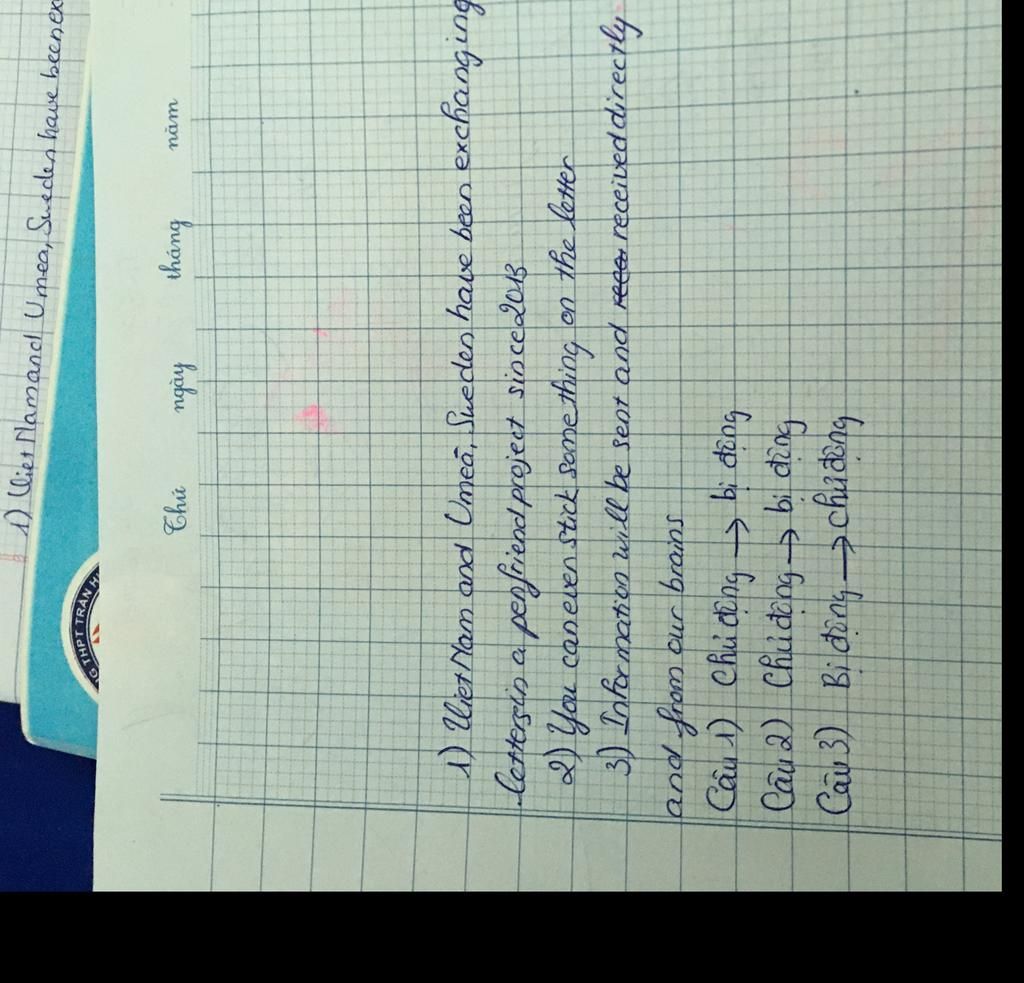 1) Viet Nam and Umea, Sweden have been ex
THPT TRẦN
Thứ ngày tháng năm
1) Viet Nam and Umeã, Sweden have been exchanging
letters in a penfriend project since 2013
2) You can even stick something on the letter
3) Information will be sent and received directly
and from our brains
Câu 1) Chủ động → bị động
Câu 2) Chủ động → bị động
Câu 3) Bị động → chủ động